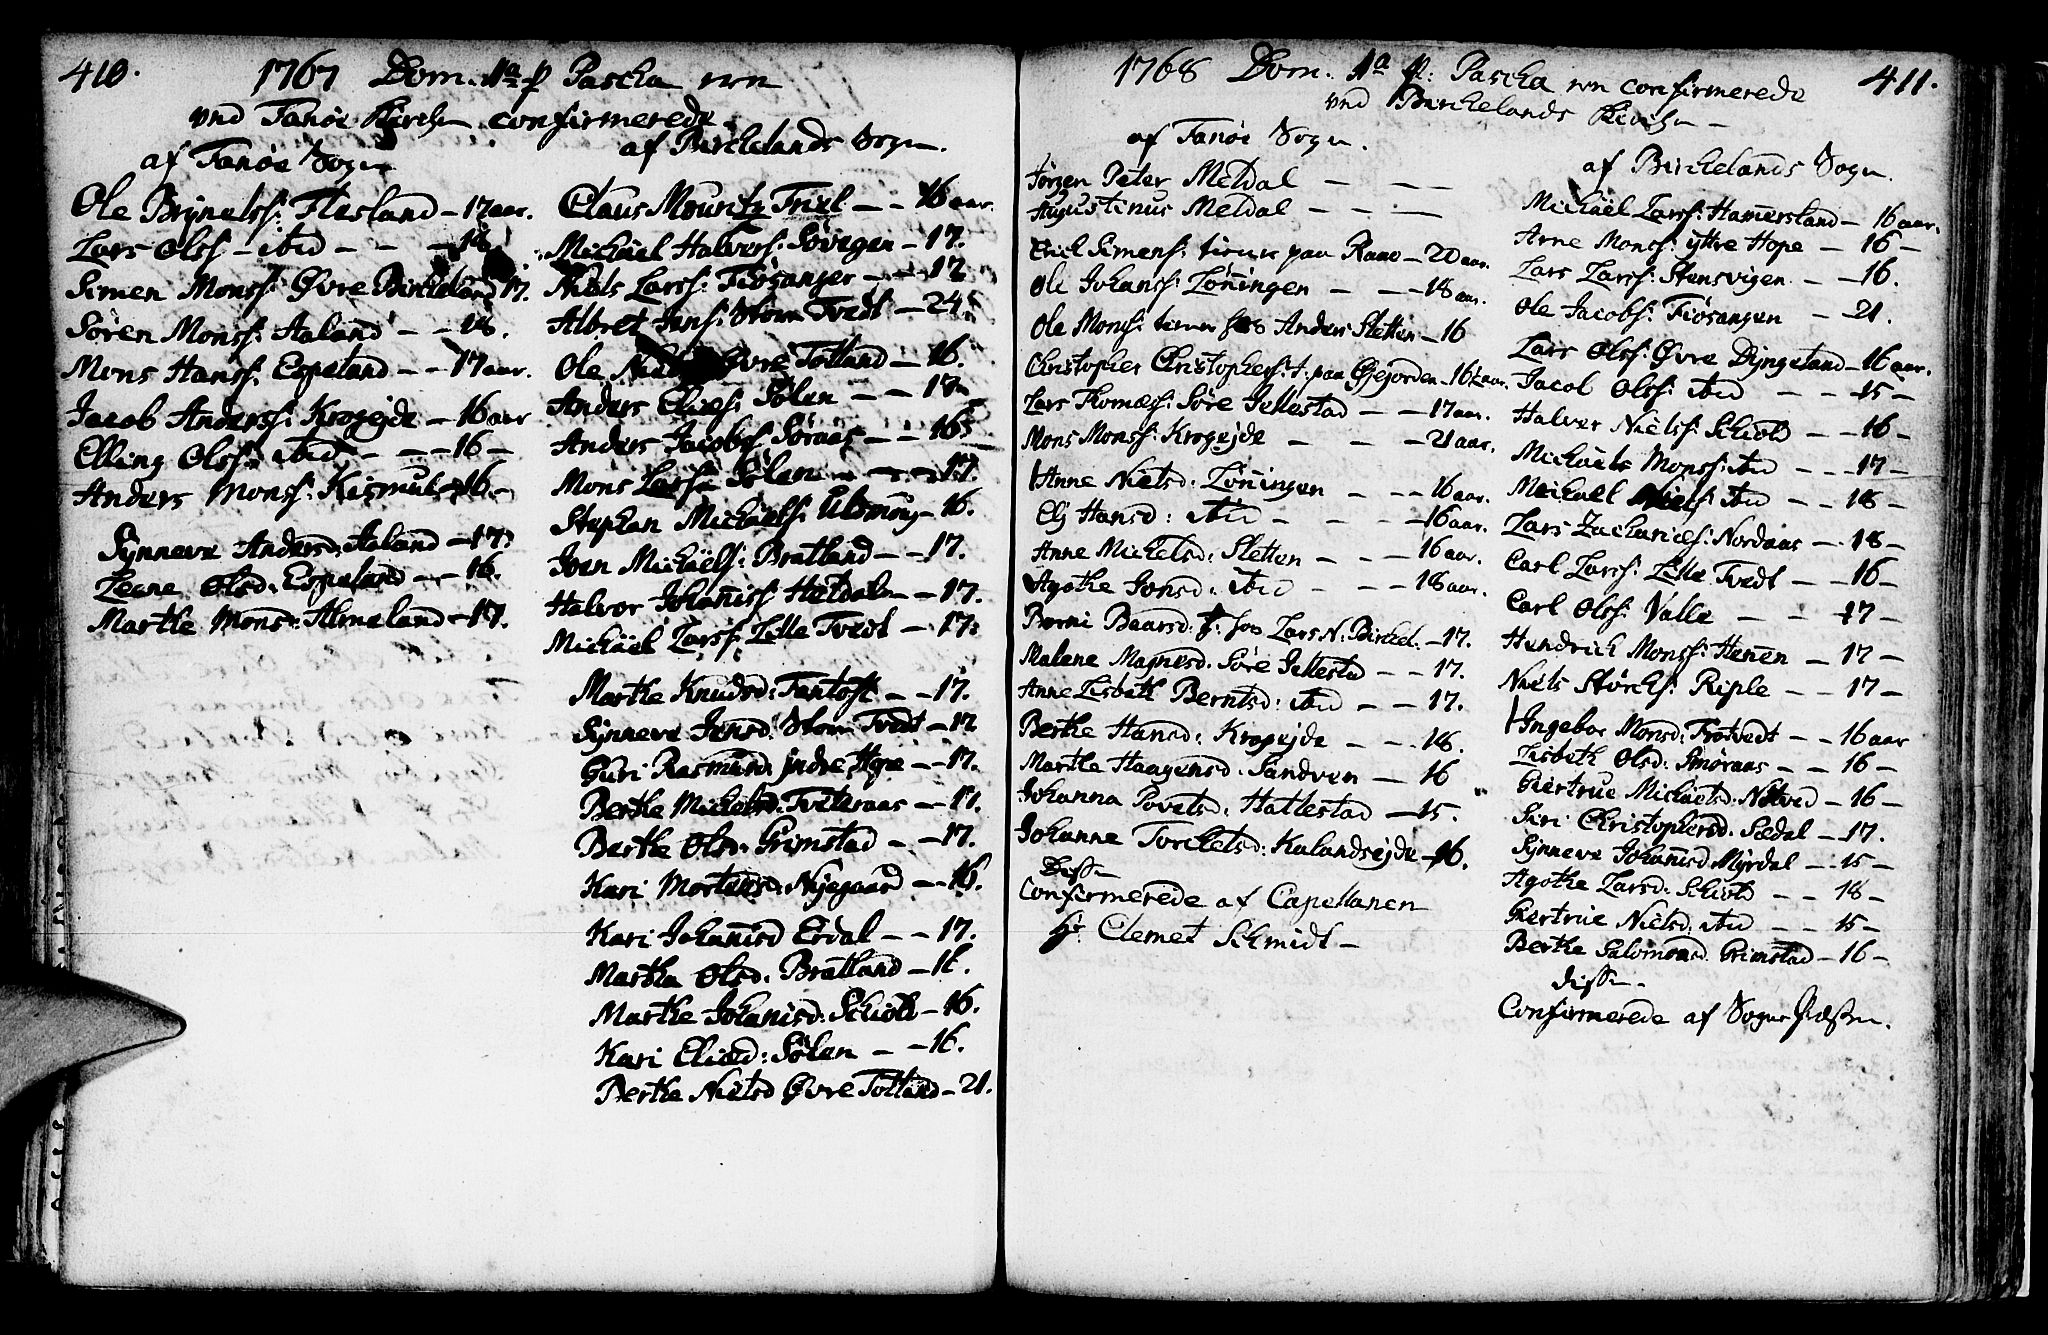 410.
1767 Dom. 1a p Pascha ere
ved Fanøe Kirche confirmerede
af Fanøe Sogn
Ole Brynelss: Flesland - 17 aar.
Lars Olss - ibid - - - 18
Simen Monss: Øvre Birkeland 17.
Søren Monss: Aaland - - 18.
Mons Hanss: Espeland - - 17 aar.
Jacob Anderss: Krogejde - 16 aar
Elling Olss: ibid - - - 16 -
Anders Monss: Kismul - 16 -
Synneve Andersd: Aaland - 17.
Lene Olsd: Espeland - - 16.
Marthe Monsd: Almeland - 17.
af Birchelands Sogn.
Claus Mouritz Friel - - 16 aar.
Michäel Halvorss: Søvigen - 17.
Niels Larss: Fiøsanger - - 17
Albret Jenss: Store Tvedt - 24.
Ole Niels Øvre Totland - 16.
Anders Eliess: Sølen - - 17
Anders Jacobss: Søraas - - 16
Mons Larss: Sølen - - - 17.
Stephan Michäelss: Ulsmoug - 16.
Iven Michäelss: Bratland - - 17.
Halvor Johaniss: Hetdal - - 17.
Michäel Larss: Lille Tvedt - 17.
Marthe Knudsd: Fantoft - - 17.
Synneve Jensd: Store Tvedt - 17
Guri Rasmusd: Jndre Hope - - 17.
Berthe Michelsd: Tveteraas - 17.
Berthe Olsd: Grimstad - - 17.
Kari Mortensd: Nyegaard - - 16.
Kari Johanisd Erdal - - 17.
Martha Olsd: Bratland - 16.
Marthe Johanisd: Schiold - 16.
Kari Eliæd: Sølen - - 16.
Berthe Nielsd Øvre Totland - 21.
1768 Dom. 1a p: Pascha ere confirmerede 411.
ved Birchelands Kirche -
af Fanøe Sogn.
Jørgen Peter Meldal - - -
Augustinus Meldal - - -
Erich Simens: tiener paa Raae - 20 aar.
Ole Johanss: Løningen - - - 18 aar.
Ole Monss: tiener hos Anders Sletten - 16
Christopher Christopherss: t. paa Gjejorden - 16½ aar.
Lars Thomæss: Søre Jellestad - - 17 aar.
Mons Monss: Krogejde - - - 21 aar.
Anne Nielsd: Løningen - - - 16 aar.
Elj Hansd: ibid - - - - 16 aar.
Anne Michelsd: Sletten - - - 16 aar.
Agothe Jonsd: ibid - - - 18 aar.
Borni Baarsd: t: hos Lars N: Birkel. - 17.
Malene Magnesd: Søre Jellestad - - 17.
Anne Lisbeth Berntsd: ibid - - 17.
Berthe Hansd: Krogejde - - - 18.
Marthe Haagensd: Sandven - - 16
Johanna Povelsd: Hatlestad - 15.
Johanne Torchelsd: Kalandsejde - 16.
Disse
Confirmerede af Capellanen
Hr. Clemet Schmidt -
af Birchelands Sogn.
Michäel Larss: Hamersland - 16 aar.
Arne Monss: ijttre Hope - 16 -
Lars Larss: Stensvigen - - 16.
Ole Jacobs: Fiøsangen - 21.
Lars Olss: Øvre Dyngeland - 16 aar.
Jacob Olss: ibid - - - 15 -
Halvor Nielss: Schiold - - 16 -
Michäels Monss: ibid - - - 17 -
Michael Niels: ibid - - 18 -
Lars Zachariæs: Nordaas - 18 -
Carl Larss: Lille Tvedt - - 16 -
Carl Olss: Valle - - - 17 -
Hendrich Monss: Henen - 17 -
Niels Størchs: Riple - - 17 -
Ingebor Monsd: Trotvedt - - 16 aar
Lisbeth Olsd: Smøraas - - 16 -
Giertrue Michäelsd: Nøtved - 16 -
Siri Christophersd: Sædal - 17.
Synneve Johanisd Myrdal - 15 -
Agothe Larsd: Schiold - - 18 -
Giertrue Nielsd: ibid - - 15 -
Berthe Salomonsd. Grimstad - 16 -
disse.
Confirmerede af Sogne Præsten.